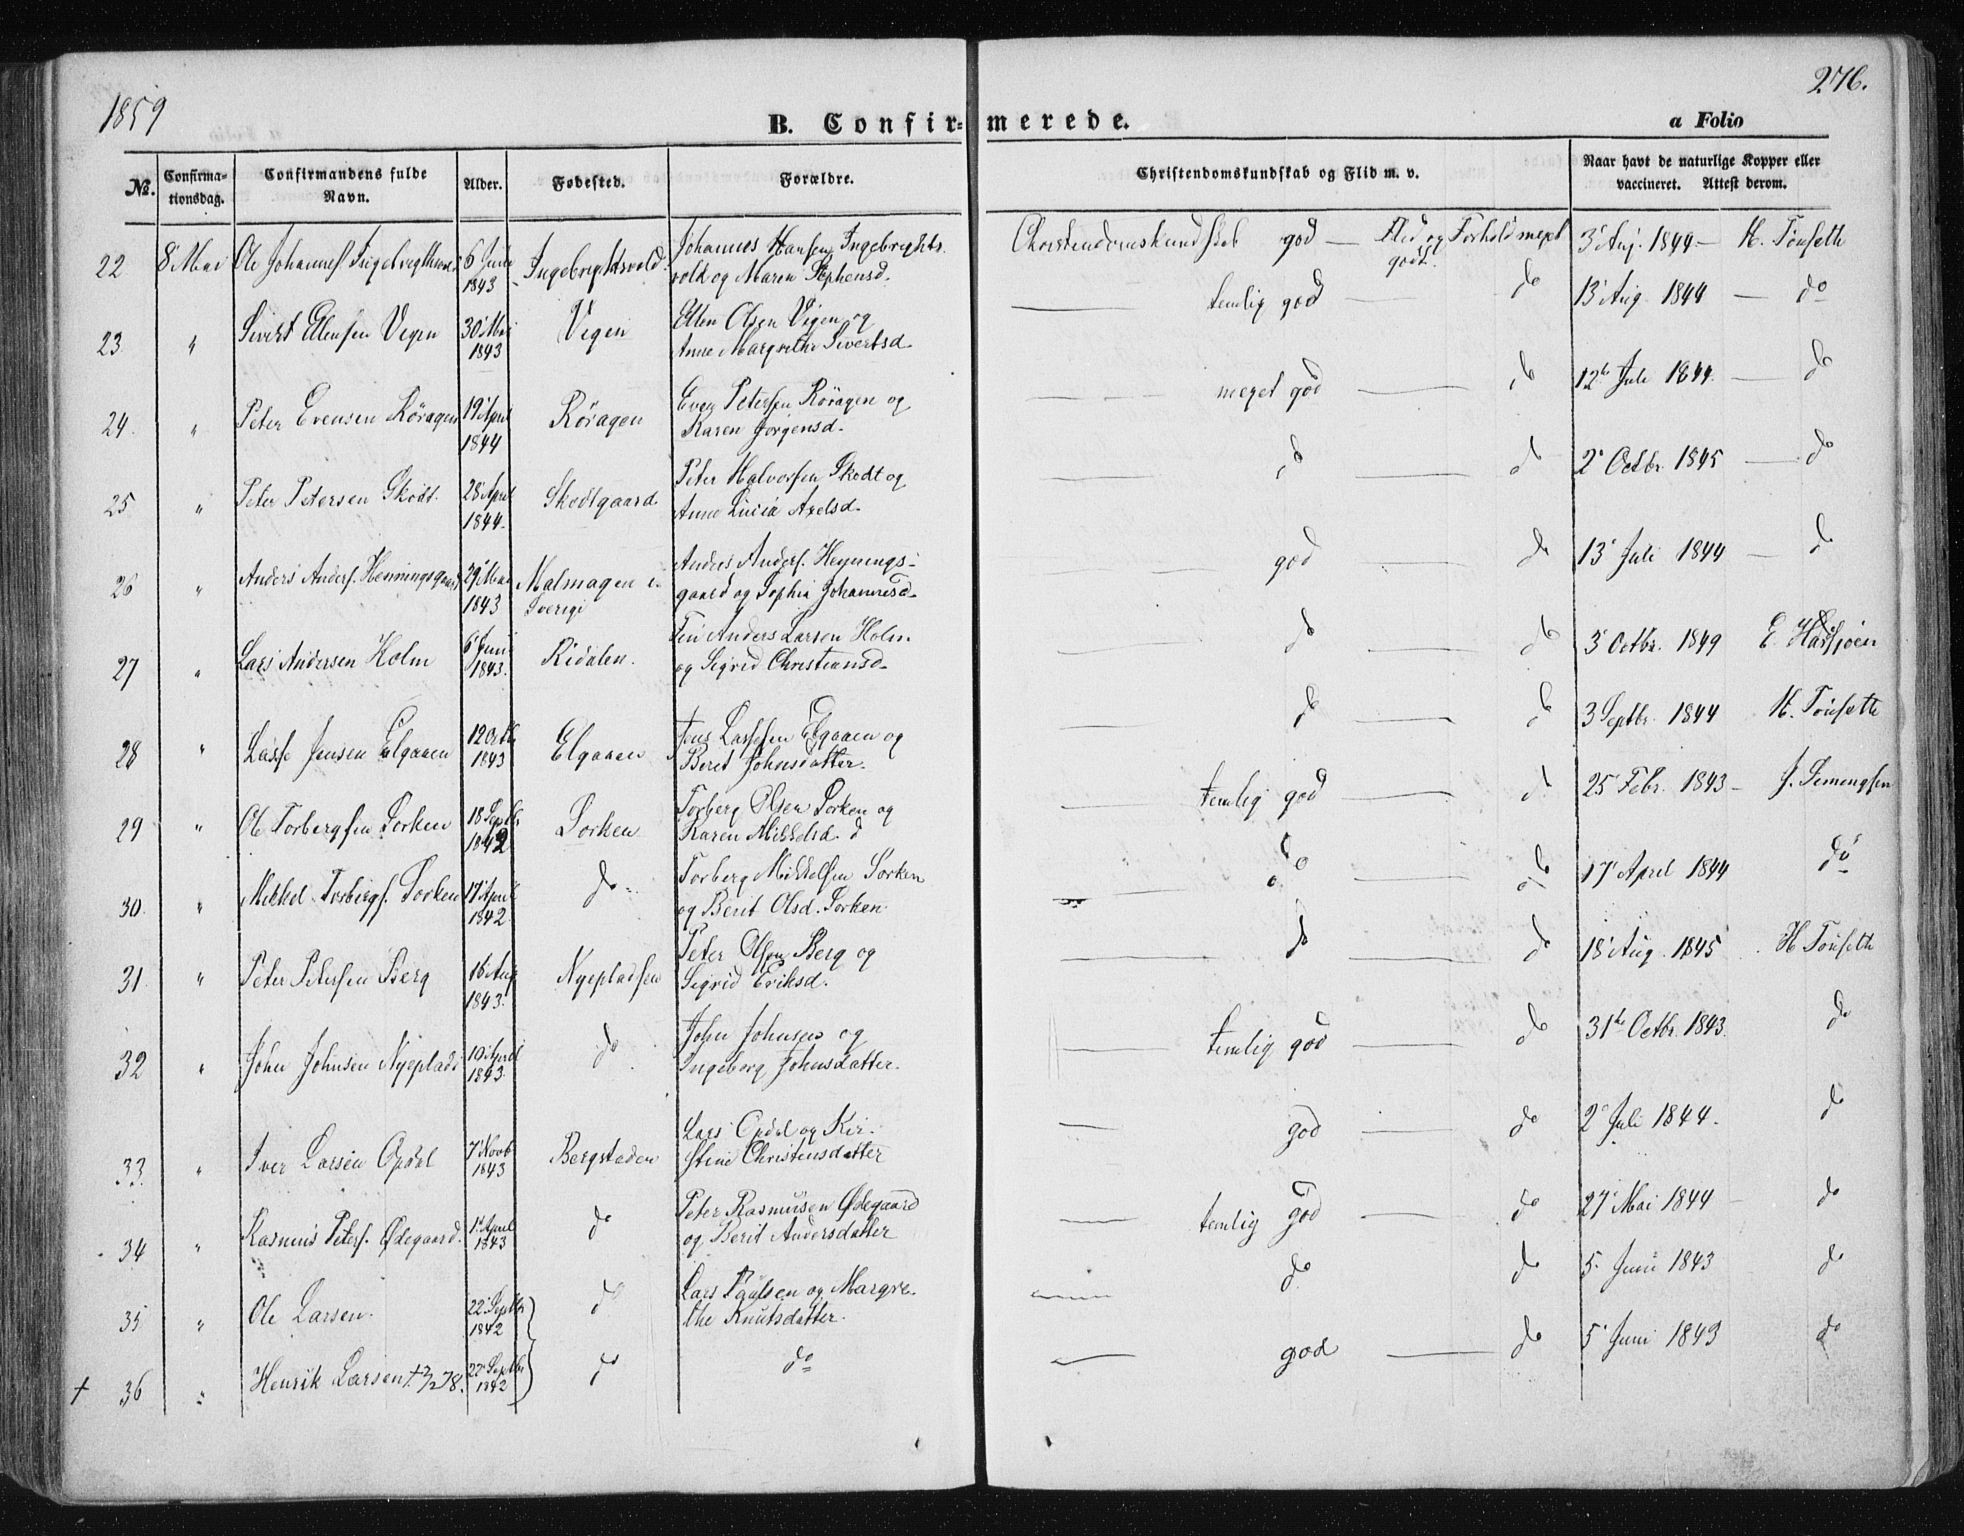 1859
276.
B. Confir= merede.
a Folio
No. Confirma-tionsdag. Confirmandens fulde Navn. Alder. Fødested. Forældre. Christendomskundskab og Flid m. v. Naar havt de naturlige Kopper eller vaccineret. Attest derom.
22 8 Mai Ole Johannes 6 Juni 1843 Ingebrigtsvold. Johannes Hansen Ingebrights. vold og Maren Stephensd. Christendomskundskab god — Flid og Forhold meget godt. 3' Aug. 1844 — H. Tönseth
23 " Sivert Ellensen Vegen 30' Mai 1843 Vigen Ellen Olsen Vigen og Anne Margrethe Sivertsd. — temlig god — do 13' Aug. 1844 — do
24. " Peter Evensen Röragen 19' April 1844 Röragen Even Petersen Röragen og Karen Jörgensd. — meget god — do 12te Juli 1844. — do
25 " Peter Petersen Sködt. 28' April 1844. Skodtgaard Peter Halvorsen Skodt og Anne Lucia Axelsd. — do — do 2' Octbr. 1845 — do
26 " Anders Anders. Henningsgaard 29' Mai 1843 Malmagen i Sverige Anders Anders. Hennings-gaard og Sophia Johannesd. — god — do 13' Juli 1844 — do
27 " Lars Andersen Holm 6' Juni 1843. Ridalen. Anders Larsen Holm. og Sigrid Christiansd. — do — do 3' Octbr. 1849 E. Harsjöen
28 " Lasse Jensen Elgaaen 12 Octb 1843 Elgaaen Jens Lassesen Elgaaen og Berit Johnsdatter. — do — do 3 Septbr. 1844 H. Tönseth
29 " Ole Torbergsen Sorken 18 Septbr 1842 Sorken Torberg Olsen Sorken og Karen Mikkelsd. — temlig god — do 25' Febr. 1843 — J. Semengsen
30. " Mikkel Torbergs. Sorken 17' April 1842. do Torberg Mikkelsen Sorken og Berit Olsd. Sorken. — do — do 17' April 1844 do
31. " Peter Petersen Berg 16' Aug 1843. Nyepladsen Peter Olsen Berg og Sigrid Eriksd. — do — do 18' Aug. 1845 H Tönseth
32 " John Johnsen Nyeplads 10' April 1843. do John Johnsen og Ingeborg Johnsdatter. — temlig god — do 31te Octbr. 1843. do
33. " Iver Larsen Opdal 7' Novb 1843 Bergstaden Lars Opdal og Kir-stine Christensdatter — god — do 2' Juli 1844. do
34 " Rasmus Peters. Ödegaard. 1' April 1843 do Peter Rasmusen Ødegaard og Berit Andersdatter — temlig god — do 27' Mai 1844 do
35 " Ole Larsen. 22' Septbr 1842 do Lars Paulsen og Margre-the Knutsdatter. — do — do 5. Juni 1843 do
† 36 " Henrik Larsen 22' Septbr 1842 do do — god — do 5' Juni 1843 do